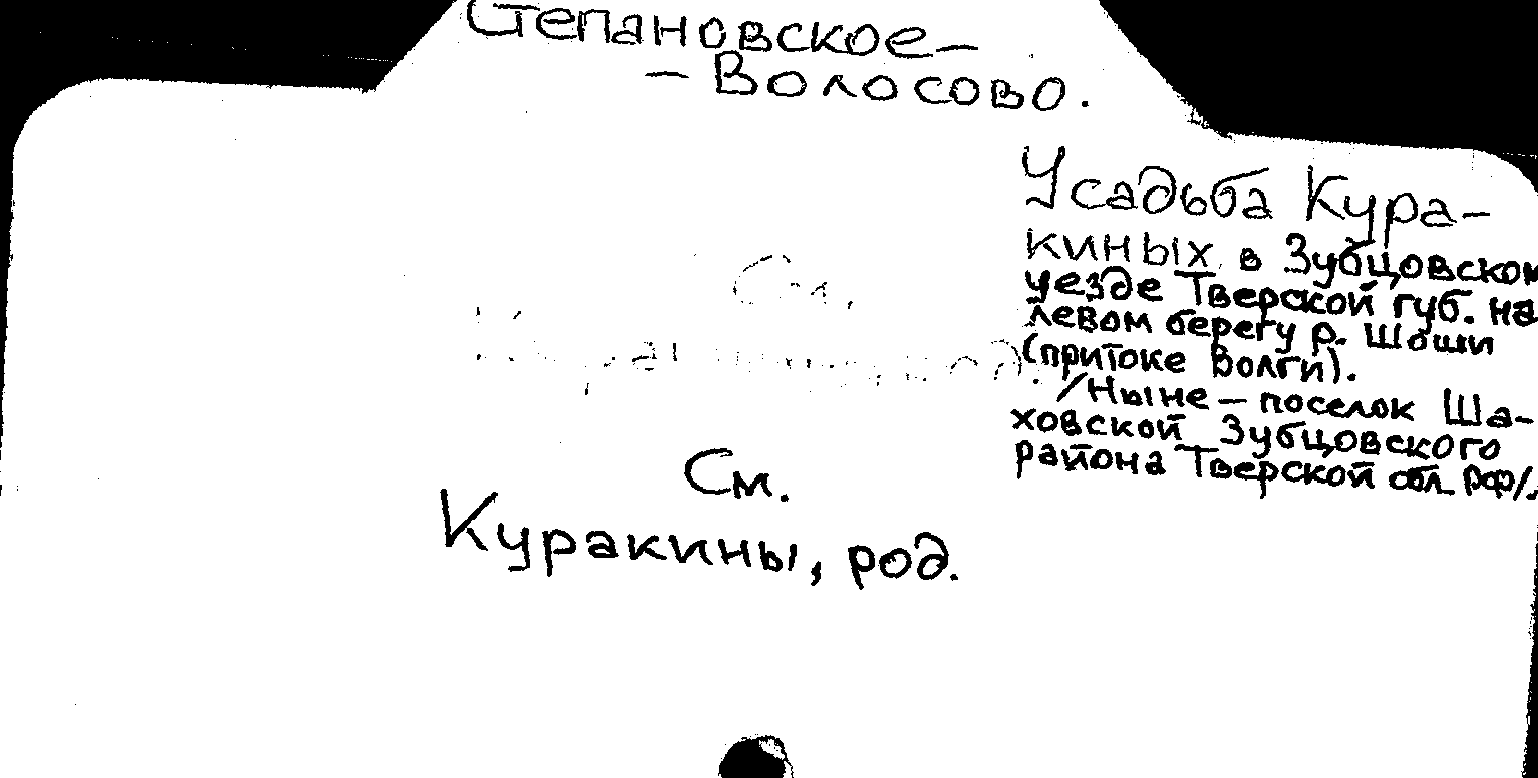 Степановское-
-Волосово.
Усадьба Кура-
киных в Зубцовском
уезде Тверской губ. на
левом берегу р. Шоши
(притоке Волги).
/Ныне – поселок Ша-
ховской Зубцовского
района Тверской обл. РФ/.
См.
Куракины, род.